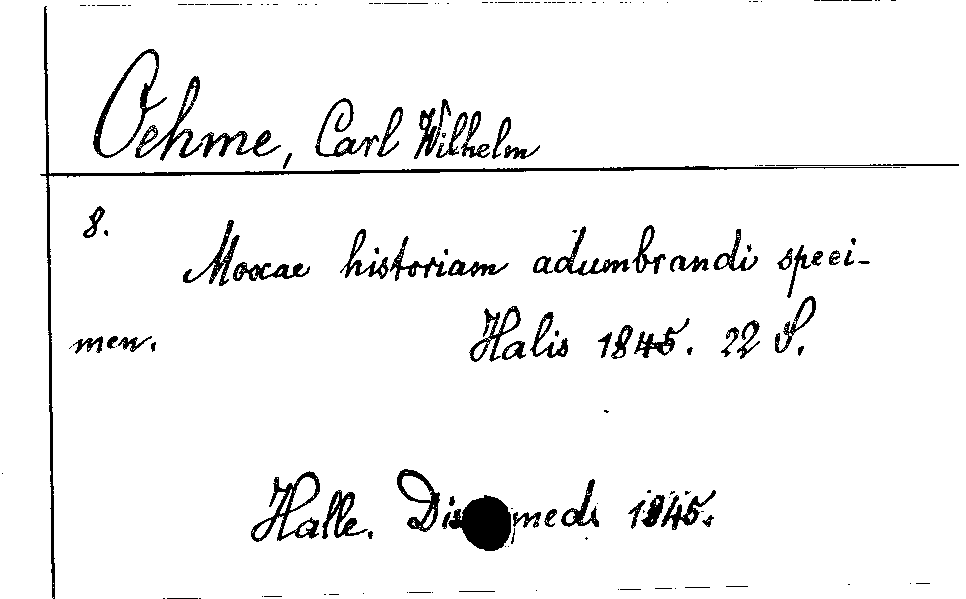 Oehme, Carl Wilhelm
8.
Moxae historiam adumbrandi speci-
men. Halis 1845. 22 S.
Halle. med. 1845.